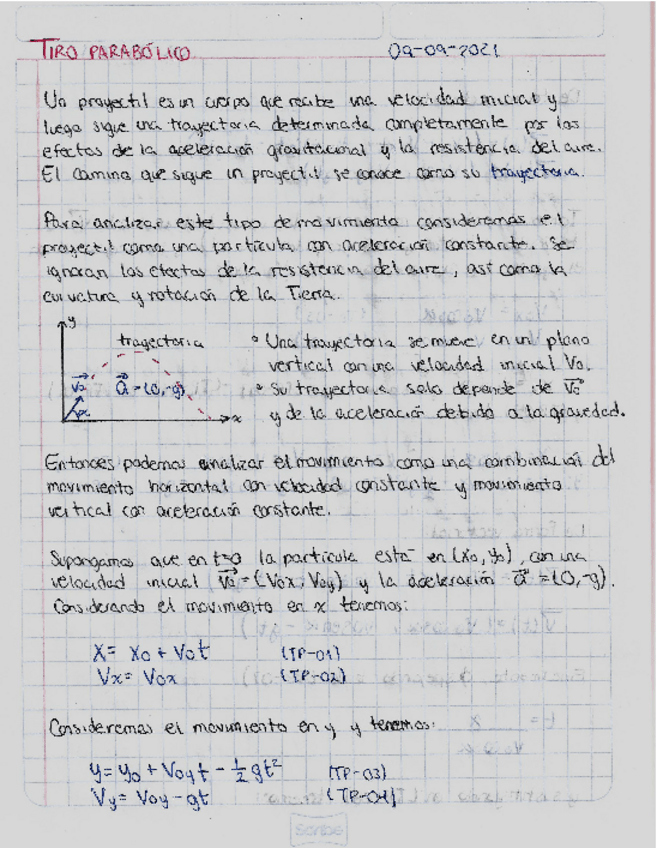 TIRO PARABÓLICO 09-09-2021
Un proyectil es un cuerpo que recibe una velocidad inicial y
luego sigue una trayectoria determinada completamente por los
efectos de la aceleración gravitacional y la resistencia del aire.
El camino que sigue un proyectil se conoce como su trayectoria.
Para analizar este tipo de movimiento consideremos el
proyectil como una partícula con aceleración constante. Se
ignoran los efectos de la resistencia del aire, así como la
curvatura y rotación de la Tierra.
y
trayectoria
V⃗o a⃗=(0,-g)
α x
° Una trayectoria se mueve en un plano
vertical con una velocidad inicial Vo.
° Su trayectoria solo depende de V⃗o
y de la aceleración debido a la gravedad.
Entonces podemos analizar el movimiento como una combinación del
movimiento horizontal con velocidad constante y movimiento
vertical con aceleración constante.
Supongamos que en t=0 la partícula está en (xo, yo), con una
velocidad inicial V⃗o=(Vox, Voy) y la aceleración a⃗ =(0,-g).
Considerando el movimiento en x tenemos:
X= Xo + Vot (TP-01)
Vx= Vox (TP-02)
Consideremos el movimiento en y, y tenemos:
y= yo + Voyt - ½ gt² (TP-03)
Vy= Voy - gt (TP-04)
Scribe